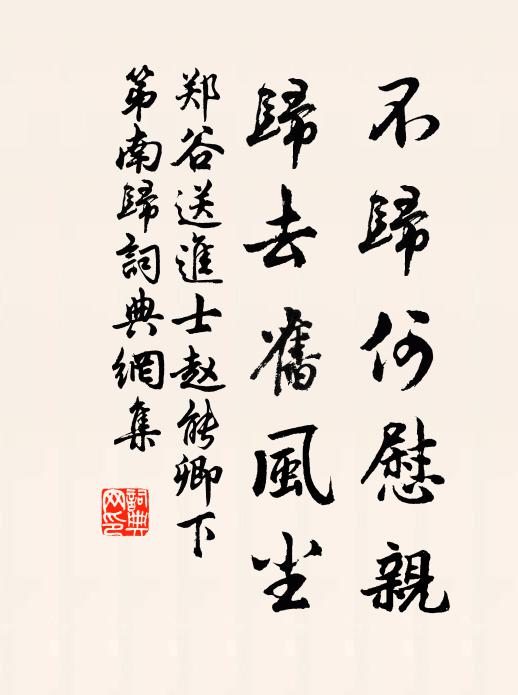 不歸何慰親
歸去舊風尘
郑谷送進士赵能卿下
第南歸詞典網集
詞典
网印